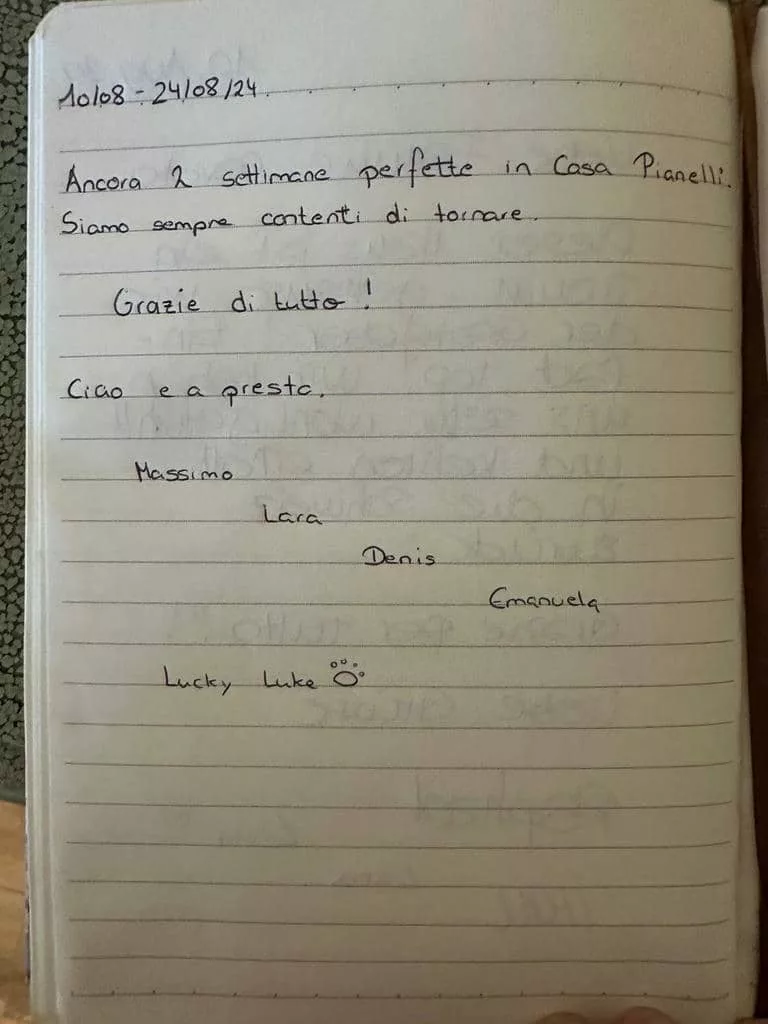 10/08 - 24/08/24
Ancora 2 settimane perfette in Casa Pianelli.
Siamo sempre contenti di tornare.
Grazie di tutto!
Ciao e a presto.
Massimo
Lara
Denis
Emanuela
Lucky Luke